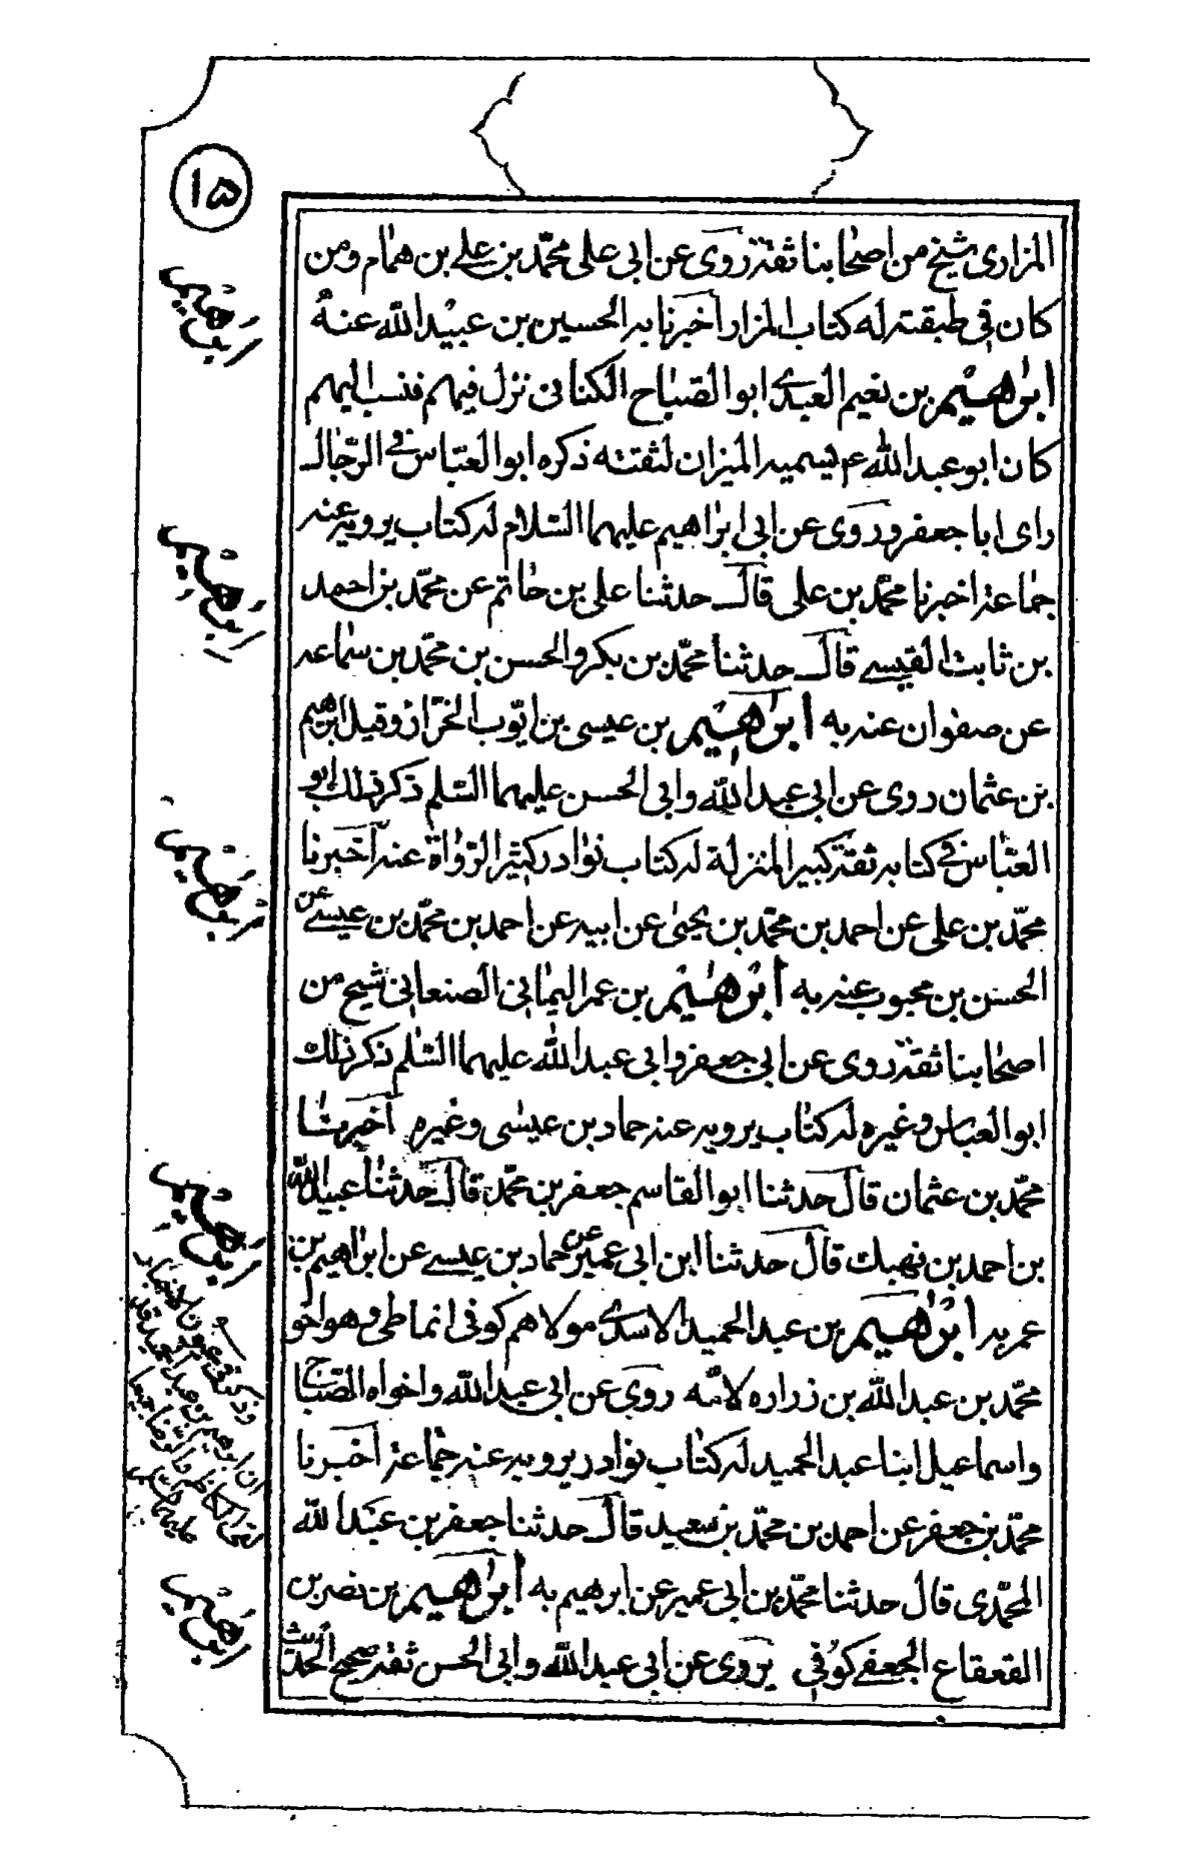 ١٥
المزارى شيخ من اصحابنا ثقة روى عن ابى على محمّد بن على بن همام ومن
كان في طبقته له كتاب المزار اخبرنا به الحسين بن عبيد الله عنه
ابراهيم بن نعيم العبدى ابو الصباح الكنانى نزل فيهم فنسب اليهم
كان ابو عبد الله ع يسميه الميزان لثقته ذكره ابو العبّاس في الرجال
راى ابا جعفر وروى عن ابى ابراهيم عليهما السّلام له كتاب يرويه عنه
جماعة اخبرنا محمّد بن على قال حدثنا على بن حاتم عن محمّد بن احمد
بن ثابت القيسى قال حدثنا محمّد بن بكر والحسن بن محمّد بن سماعه
عن صفوان عنه به ابراهيم بن عيسى بن ايّوب الخزاز وقيل ابرهيم
بن عثمان روى عن ابى عبد الله وابى الحسن عليهما السّلم ذكر ذلك ابو
العبّاس في كتابه ثقة كبير المنزلة له كتاب نوادر كثير الرّواة عنه اخبرنا
محمّد بن على عن احمد بن محمّد بن يحيى عن ابيه عن احمد بن محمّد بن عيسى عن
الحسن بن محبوب عنه به ابراهيم بن عمر اليمانى الصنعانى شيخ من
اصحابنا ثقة روى عن ابى جعفر وابى عبد الله عليهما السّلم ذكر ذلك
ابو العباس وغيره له كتاب يرويه عنه حماد بن عيسى وغيره اخبرنا
محمّد بن عثمان قال حدثنا ابو القاسم جعفر بن محمّد قال حدثنا عبيد الله
بن احمد بن نهيك قال حدثنا ابن ابى عمير عن حماد بن عيسى عن ابراهيم بن
عمر به ابراهيم بن عبد الحميد الاسدى مولاهم كوفى انماطى وهو اخو
محمّد بن عبد الله بن زراره لامّه روى عن ابى عبد الله واخواه الصّباح
واسماعيل ابنا عبد الحميد له كتاب نوادر يرويه عنه جماعة اخبرنا
محمّد بن جعفر عن احمد بن محمّد بن سعيد قال حدثنا جعفر بن عبد الله
المحمّدى قال حدثنا محمّد بن ابى عمير عن ابرهيم به ابراهيم بن نصر بن
القعقاع الجعفى كوفى يروى عن ابى عبد الله وابى الحسن ثقة صحيح الحديث
ابراهيم
ابراهيم
ابراهيم
ابراهيم
وذكر في عيون الاخبار
ان ابراهيم بن عبد الحميد قد
لقى الكاظم والرّضا جميعا
ابراهيم